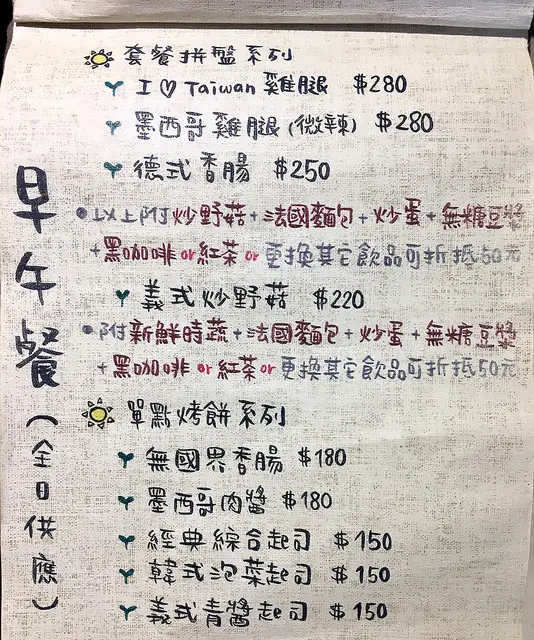 早午餐(全日供應)
套餐拼盤系列
I ♡ Taiwan 雞腿 $280
墨西哥雞腿(微辣) $280
德式香腸 $250
以上附炒野菇+法國麵包+炒蛋+無糖豆漿
+黑咖啡or紅茶or更換其它飲品可折抵50元
義式炒野菇 $220
附新鮮時蔬+法國麵包+炒蛋+無糖豆漿
+黑咖啡or紅茶or更換其它飲品可折抵50元
單點烤餅系列
無國界香腸 $180
墨西哥肉醬 $180
經典綜合起司 $150
韓式泡菜起司 $150
義式青醬起司 $150